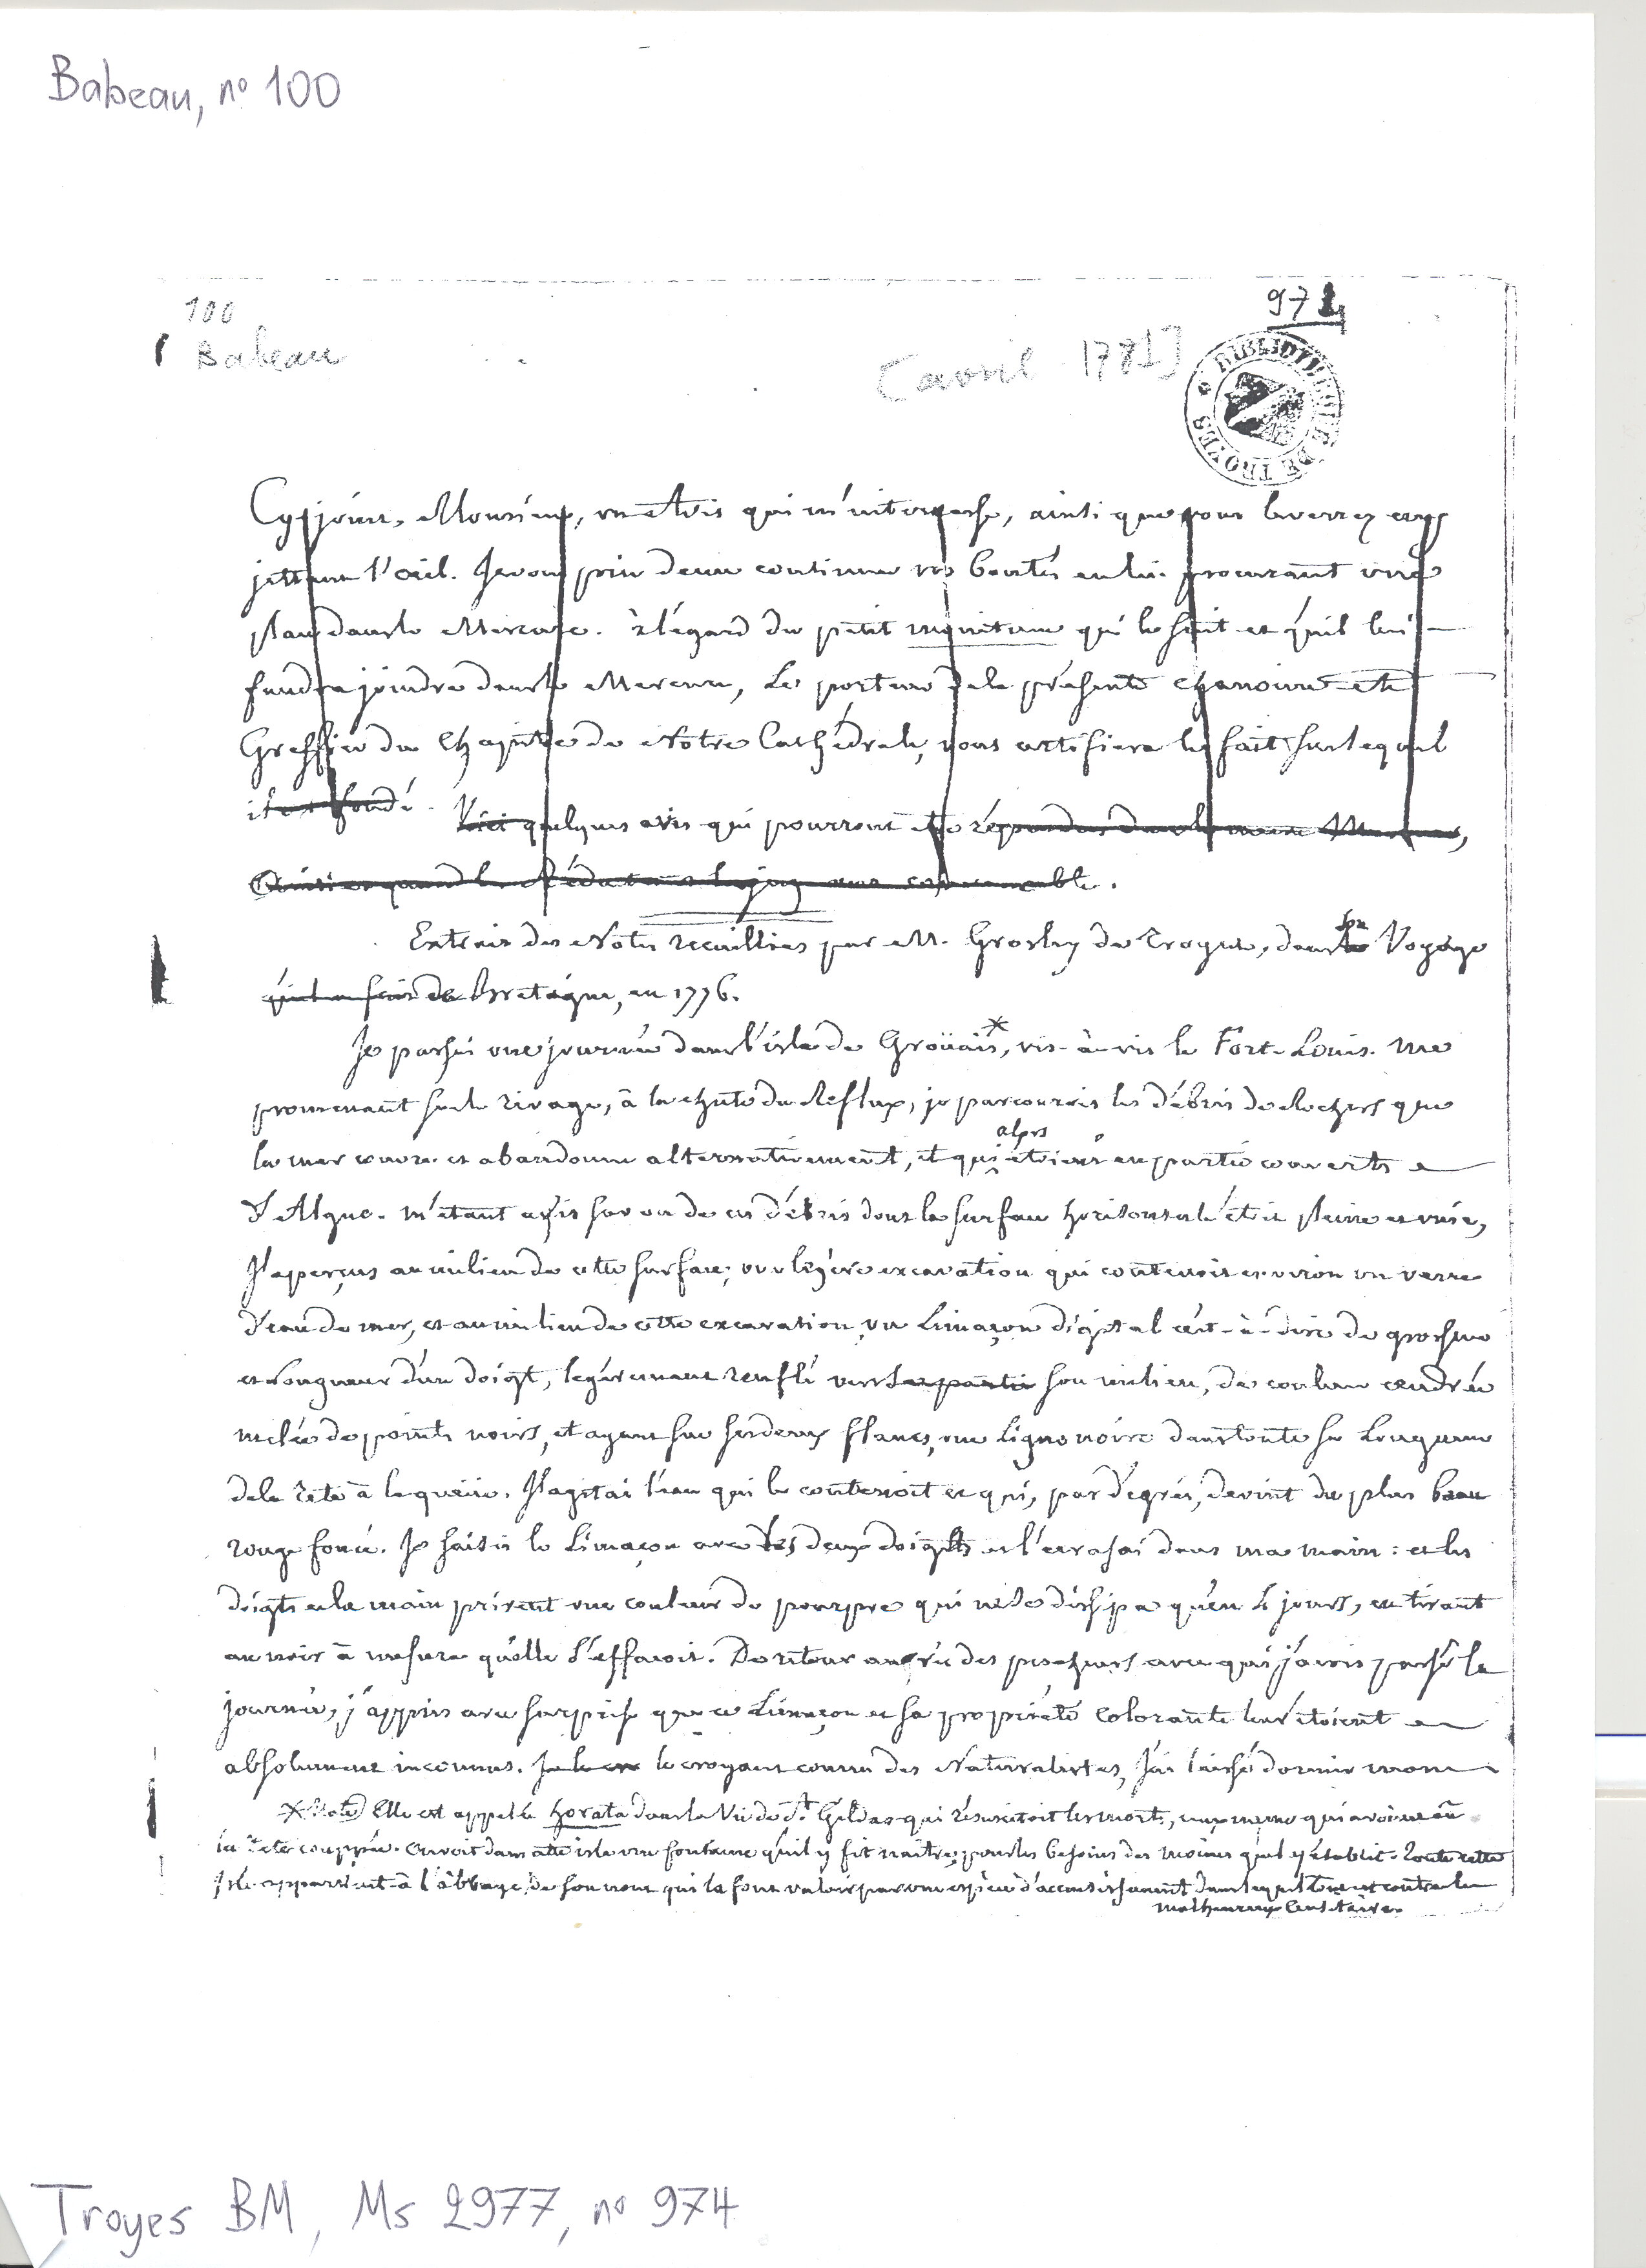 Babeau, n° 100
100
Babeau
974
[avril 1781]
BIBLIOTHEQUE DE TROYES
Cy joint, Monsieur, un Avis qui m'intéresse, ainsi que vous le verrez en y
jettant l'œil. Je vous prie de me continuer vos bontés en lui procurant une
place dans le Mercure. à l'égard du petit qui le suit et qu'il lui
faudra joindre dans le Mercure, Le porteur de la présente chanoine et
Greffier du Chapitre de Notre Cathédrale, vous certifiera le fait sur lequel
il est fondé. Voici quelques avis qui pourront être répandus dans le même Mercure,
Ainsi et quand le Rédacteur le jugera convenable.
Extrait des Notes recueillies par M. Grosley de Troyes, dans le son Voyage
qu'il a fait de Bretagne, en 1776.
Je passai une journée dans l'isle de Groüais*, vis-à-vis le Fort-Louis. me
promenant sur le rivage, à la chute du Reflux, je parcourois les débris de Rochers que
alors
la mer couvre et abandonne alternativement, et qui étoient en partie couverts
d'Algue. m'étant assis sur un de ces débris dont la surface horisontale étoit pleine et unie,
J'apperçus au milieu de cette surface, une légère excavation qui contenoit environ un verre
d'eau de mer, et au milieu de cette excavation, un Limaçon digital c'est-à-dire de grosseur
et longueur d'un doigt, légérement renflé vers sa partie son milieu, de couleur cendrée
mêlée de points noirs, et ayant sur ses deux flancs, une ligne noire dans toute sa Longueur
de la tête à la queüe. J'agitai l'eau qui le contenoit et qui, par dégrés, devint du plus beau
rouge foncé. Je saisis le Limaçon avec les deux doigts et l'écrasai dans ma main : et les
doigts et la main prirent une couleur de pourpre qui ne se dissipa qu'en 4 jours, en tirant
au noir à mesure qu'elle s'effaçoit. De retour auprès des pescheurs avec qui j'avois passé la
journée, j'appris avec surprise que ce Limaçon et sa propriété colorante leur étoient
absolument inconnus. le croyant connu des Naturalistes, J'ai laissé dormir mon
*Note) Elle est appellée horata dans la Vie de St. Gildas qui résuscitoit les morts, ceux même qui avoient eû
la tête couppée. On voit dans cette isle une fontaine qu'il y fit naitre, pour les besoins des moines qu'il y établit. Toute cette
Isle appartient à l'abbaye de son nom qui la fait valoir par une espèce d'accensissement dans lequel tout est contre les
malheureux Censitaires
Troyes BM, Ms 2977, n° 974